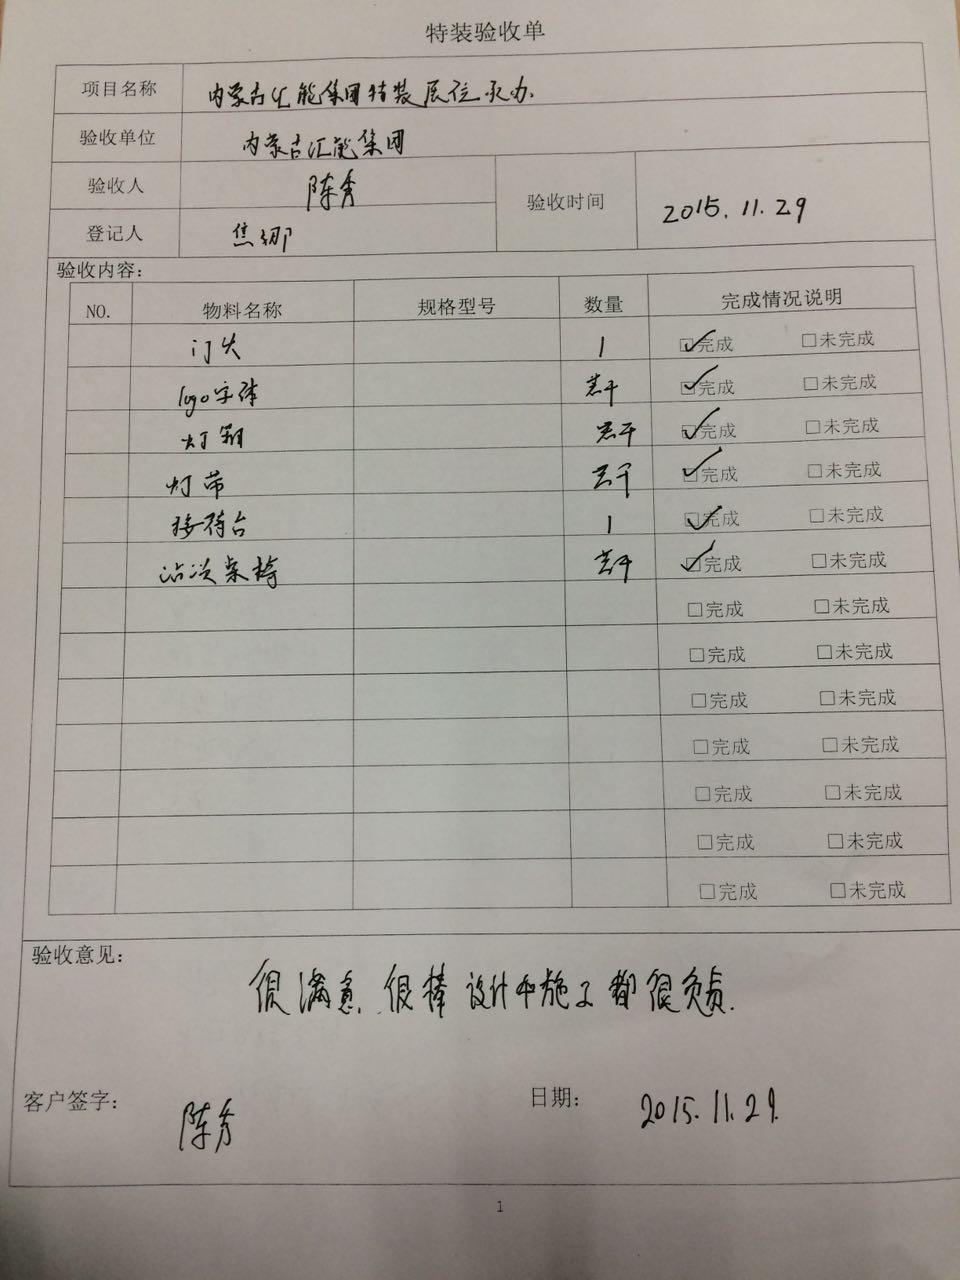 特装验收单
项目名称 内蒙古汇能集团特装展位承办.
验收单位 内蒙古汇能集团
验收人 陈秀 验收时间 2015.11.29
登记人 焦娜
验收内容:
NO. 物料名称 规格型号 数量 完成情况说明
门头 1 ☑完成 □未完成
logo字体 若干 ☑完成 □未完成
灯箱 若干 ☑完成 □未完成
灯带 若干 ☑完成 □未完成
接待台 1 ☑完成 □未完成
洽谈桌椅 若干 ☑完成 □未完成
□完成 □未完成
□完成 □未完成
□完成 □未完成
□完成 □未完成
□完成 □未完成
□完成 □未完成
□完成 □未完成
验收意见:
很满意、很棒 设计和施工都很负责.
客户签字: 陈秀 日期: 2015.11.29.
1